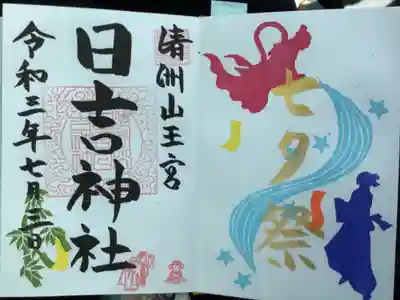 清洲山王宮
日吉神社
令和三年七月三日
七夕祭